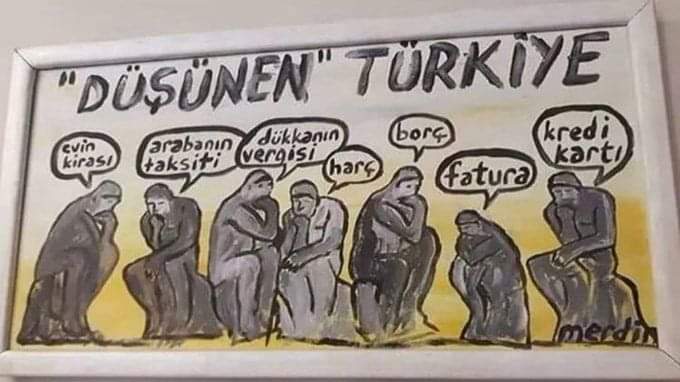 "DÜŞÜNEN" TÜRKİYE
evin
kirası
arabanın
taksiti
dükkanın
vergisi
harç
borç
fatura
kredi
kartı
merdin